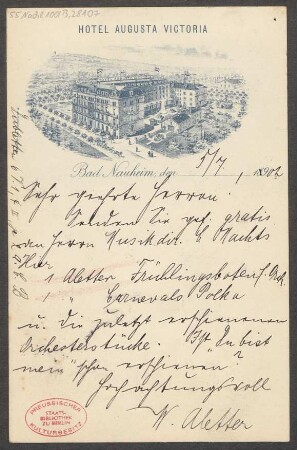 55 Nachl 100/B, 28107
HOTEL AUGUSTA VICTORIA
Bad Nauheim, den 5/7, 1902
Sehr geehrte Herren.
Senden Sie gef. gratis
an Herrn Musikdir.
hier
1 Aletter Frühlingsboten f. Orch.
1 " Carnevals Polka
u. die zuletzt erschienenen
Orchesterstücke. Ist "Du bist
mein" schon erschienen?
Hochachtungsvoll
W. Aletter
PREUSSISCHER
STAATS-
BIBLIOTHEK
ZU BERLIN
KULTURBESITZ